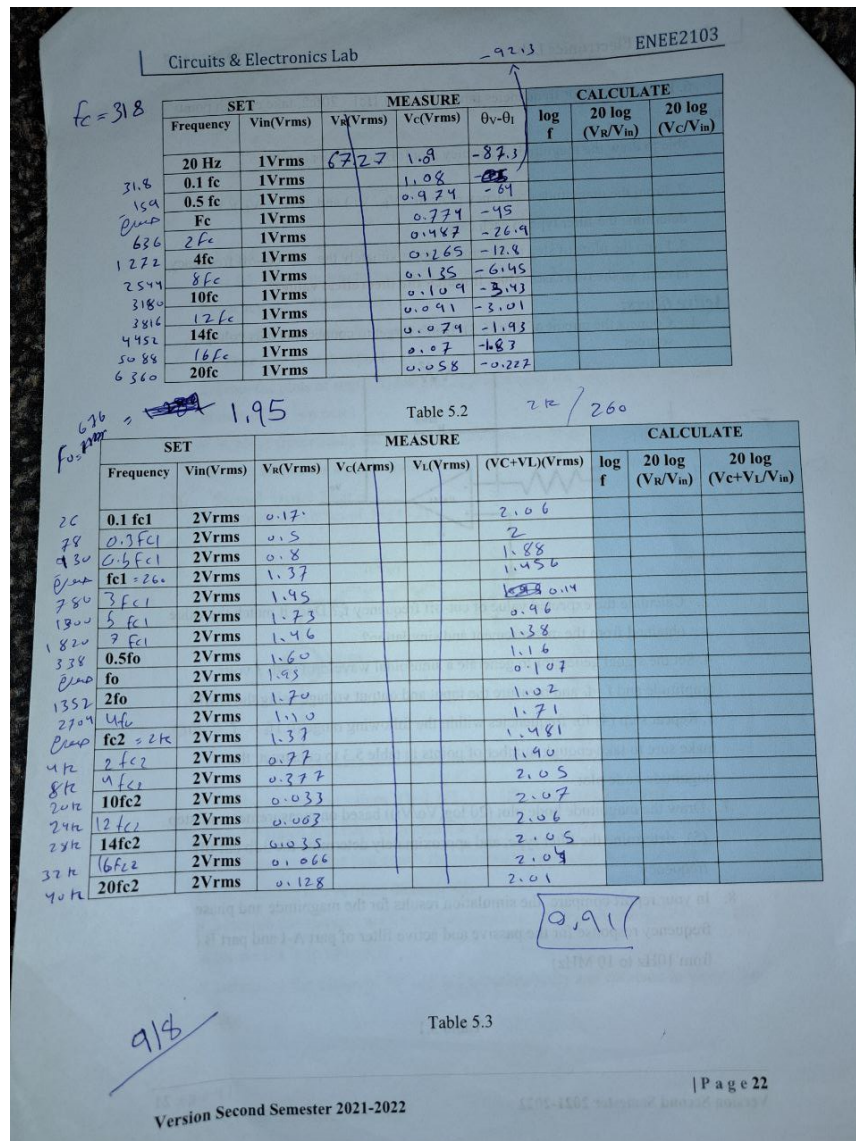 Circuits & Electronics Lab -92.3 ENEE2103
fc = 318
SET MEASURE CALCULATE
Frequency Vin(Vrms) VR(Vrms) Vc(Vrms) θV-θI log f 20 log (VR/Vin) 20 log (Vc/Vin)
20 Hz 1Vrms 6727 1.09 -87.3
31.8 0.1 fc 1Vrms 1.08
159 0.5 fc 1Vrms 0.974 -64
Fc 1Vrms 0.774 -45
636 2fc 1Vrms 0.487 -26.9
1272 4fc 1Vrms 0.265 -12.8
2544 8fc 1Vrms 0.135 -6.45
3180 10fc 1Vrms 0.109 -3.43
3816 12fc 1Vrms 0.091 -3.01
4452 14fc 1Vrms 0.079 -1.93
5088 16fc 1Vrms 0.07 -1.83
6360 20fc 1Vrms 0.058 -0.227
676
fo= = 1.95 Table 5.2 2k / 260
SET MEASURE CALCULATE
Frequency Vin(Vrms) VR(Vrms) Vc(Arms) VL(Vrms) (VC+VL)(Vrms) log f 20 log (VR/Vin) 20 log (Vc+VL/Vin)
26 0.1 fc1 2Vrms 0.17 2.06
78 0.3fc1 2Vrms 0.5 2
130 0.5fc1 2Vrms 0.8 1.88
fc1 =260 2Vrms 1.37 1.456
780 3fc1 2Vrms 1.95 0.14
1300 5 fc1 2Vrms 1.73 0.96
1820 7 fc1 2Vrms 1.46 1.38
338 0.5fo 2Vrms 1.60 1.16
fo 2Vrms 1.93 0.107
1352 2fo 2Vrms 1.70 1.02
2704 4fo 2Vrms 1.10 1.71
fc2 =2k 2Vrms 1.37 1.481
4k 2fc2 2Vrms 0.77 1.90
8k 4fc2 2Vrms 0.377 2.05
20k 10fc2 2Vrms 0.033 2.07
24k 12fc2 2Vrms 0.063 2.06
28k 14fc2 2Vrms 0.035 2.05
32k 16fc2 2Vrms 0.066 2.04
40k 20fc2 2Vrms 0.128 2.01
0.91
918
Table 5.3
| P a g e 22
Version Second Semester 2021-2022